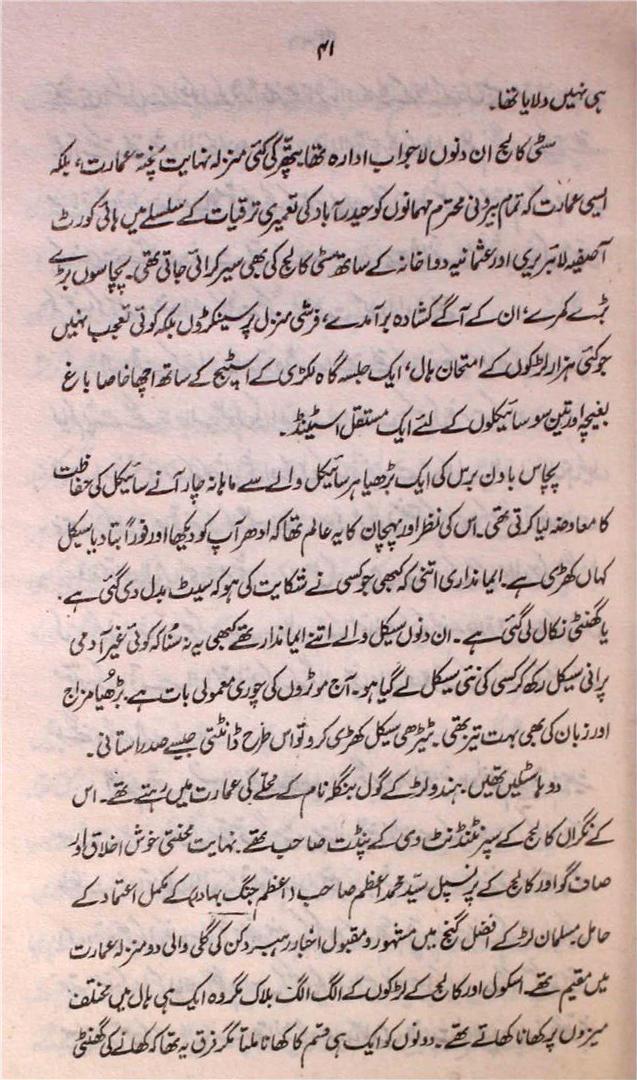 ۴۱
ہی نہیں دلایا تھا۔
سٹی کالج ان دنوں لاجواب ادارہ تھا پتھّر کی کئی منزلہ نہایت پُختہ عمارت، بلکہ
ایسی عمارت کہ تمام بیرونی محترم مہمانوں کو حیدرآباد کی تعمیری ترقیات کے سلسلے میں ہائی کورٹ
آصفیہ لائبریری اور عثمانیہ دواخانہ کے ساتھ سٹی کالج کی بھی سیر کرائی جاتی تھی۔ پچاسوں بڑے
بڑے کمرے، ان کے آگے کشادہ برآمدے، فرشی منزل پر سینکڑوں بلکہ کوئی تعجب نہیں
جو کئی ہزار لڑکوں کے امتحان ہال، ایک جلسہ گاہ لکڑی کے اسٹیج کے ساتھ اچھا خاصا باغ
بغیچہ اور تین سو سائیکلوں کے لئے ایک مستقل اسٹینڈ۔
پچاس باون برس کی ایک بڑھیا ہر سائیکل والے سے ماہانہ چار آنے سائیکل کی حفاظت
کا معاوضہ لیا کرتی تھی۔ اس کی نظر اور پہچان کا یہ عالم تھا کہ ادھر آپ کو دیکھا اور فوراً بتا دیا سیکل
کہاں کھڑی ہے۔ ایمانداری اتنی کہ کبھی جو کسی نے شکایت کی ہو کہ سیٹ بدل دی گئی ہے۔
یا گھنٹی نکال لی گئی ہے۔ ان دنوں سیکل والے اتنے ایماندار تھے کبھی یہ نہ سُنا کہ کوئی غیر آدمی
پرانی سیکل رکھ کر کسی کی نئی سیکل لے گیا ہو۔ آج موٹروں کی چوری معمولی بات ہے۔ بڑھیا مزاج
اور زبان کی بھی بہت تیز تھی۔ ٹیڑھی سیکل کھڑی کرو تو اس طرح ڈانٹتی جیسے صدر استانی۔
دو ہاسٹلیں تھیں۔ ہندو لڑکے گول بنگلہ نام کے محلّے کی عمارت میں رہتے تھے۔ اس
کے نگراں کالج کے سپرنٹنڈنٹ وی کے پنڈت صاحب تھے۔ نہایت محنتی خوش اخلاق اور
صاف گو اور کالج کے پرنسپل سیّد محمد اعظم صاحب (اعظم جنگ بہادر) کے مکمل اعتماد کے
حامل۔ مسلمان لڑکے افضل گنج میں مشہور و مقبول اخبار رہبر دکن کی گلی والی دو منزلہ عمارت
میں مقیم تھے۔ اسکول اور کالج کے لڑکوں کے الگ الگ بلاک مگر وہ ایک ہی ہال میں مختلف
میزوں پر کھانا کھاتے تھے۔ دونوں کو ایک ہی قسم کا کھانا ملتا مگر فرق یہ تھا کہ کھانے کی گھنٹی